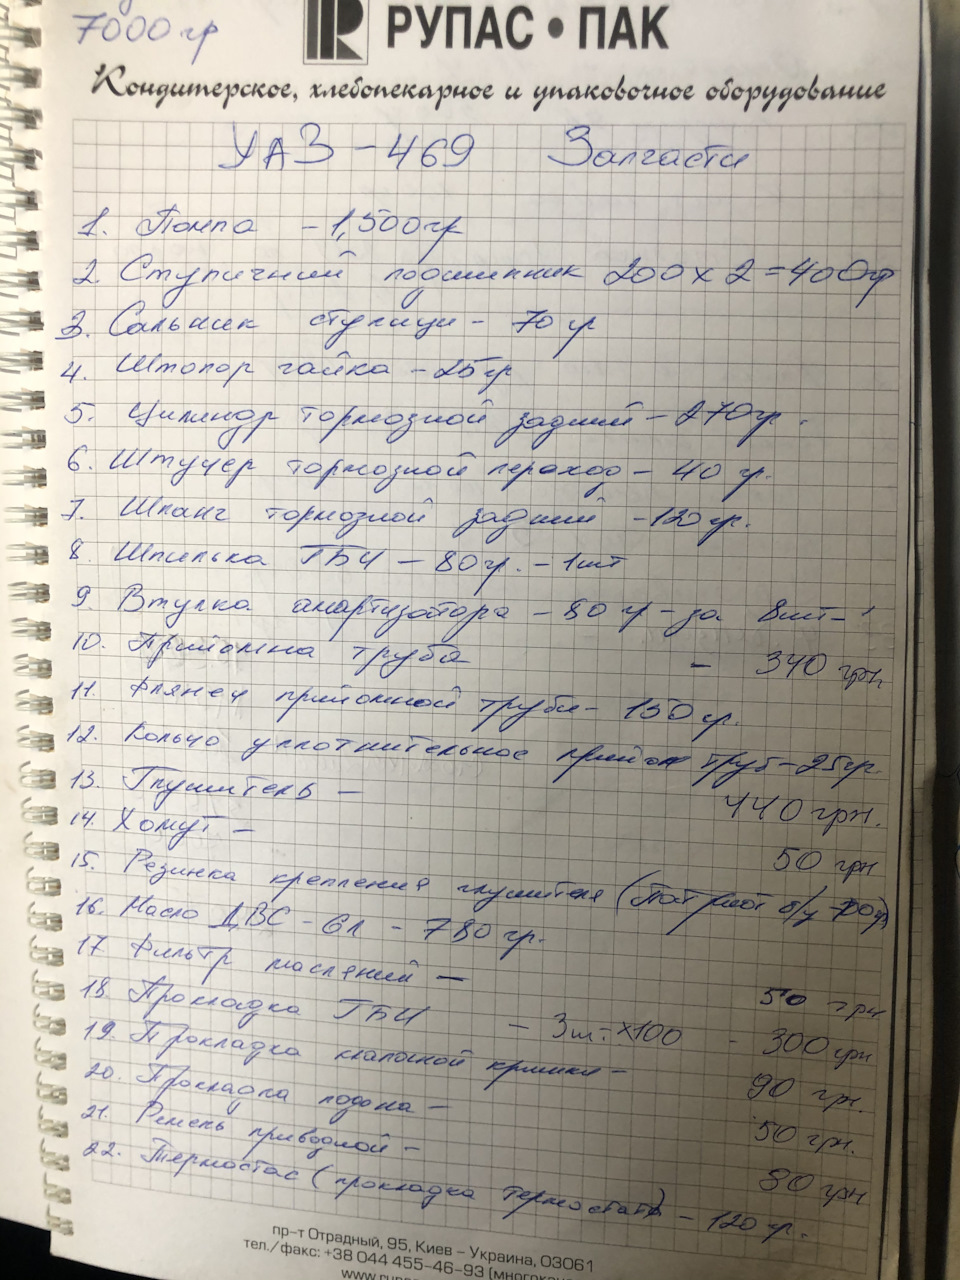 7000 гр
РУПАС • ПАК
Кондитерское, хлебопекарное и упаковочное оборудование
УАЗ - 469 Запчасти
1. Помпа - 1,500 гр
2. Ступичний подшипник 200 х 2 = 400 гр
3. Сальник ступици - 70 гр
4. Штопор гайка - 25 гр
5. Цилиндр тормозной задний - 270 гр.
6. Штуцер тормозной переход - 40 гр.
7. Шланг тормозной задний - 120 гр.
8. Шпилька ГБЦ - 80 гр. - 1 шт
9. Втулка амартизатора - 80 гр - за 8 шт -
10. Прийомна труба - 340 грн
11. Флянец прийомной труби - 150 гр.
12. Кольцо уплотнительное прийом труб - 25 гр.
13. Глушитель - 440 грн.
14. Хомут - 50 грн
15. Резинка крепления глушителя (Патриот б/у -
16. Масло ДВС - 6л - 780 гр.
17 Фильтр масляний - 50 грн
18. Прокладка ГБЦ - 3 шт. х100 - 300 грн
19. Прокладка клапаной кришки - 90 грн.
20. Прокладка подона - 50 грн.
21. Ремень приводной - 80 грн
22. Термостат (прокладка термостата) - 120 гр.
пр-т Отрадный, 95, Киев – Украина, 03061
тел./факс: +38 044 455-46-93